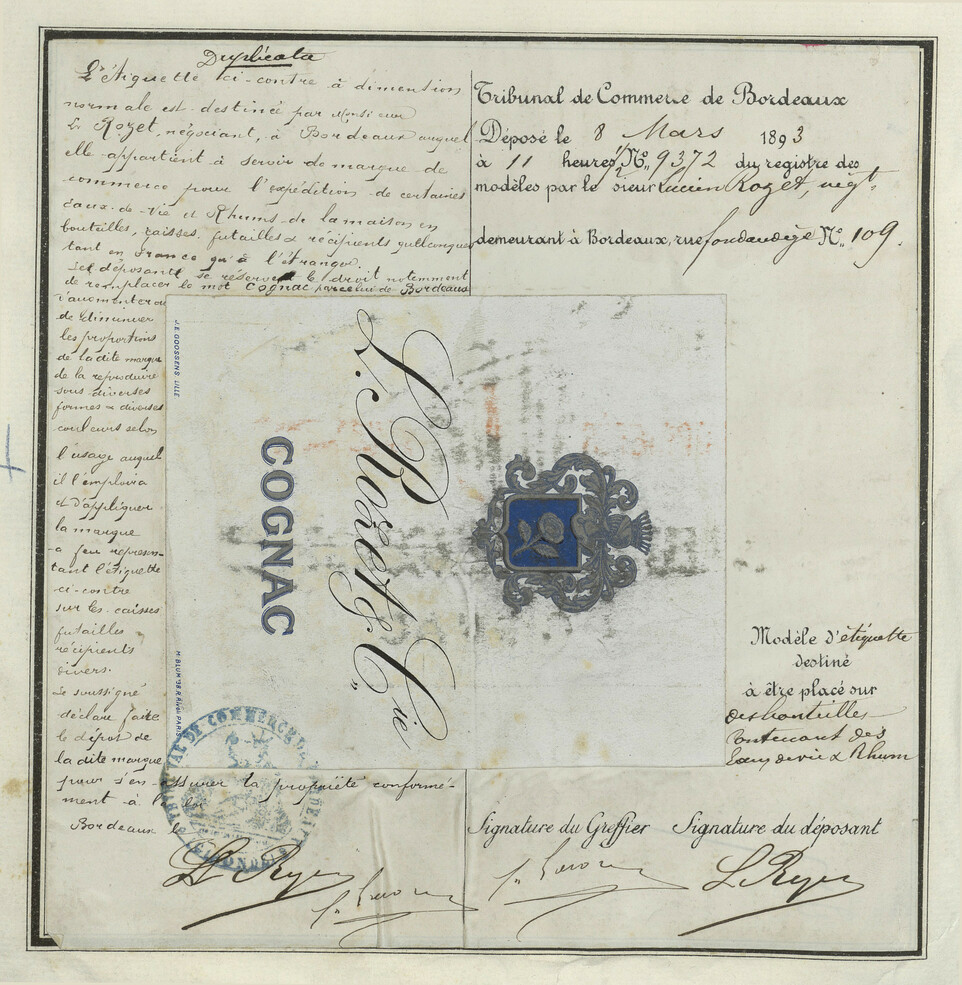 Duplicata
L'étiquette ci-contre à dimention
normale est destinée par Monsieur
L. Rozet, négociant, à Bordeaux auquel
elle appartient à servir de marque de
commerce pour l'expédition de certaines
eaux-de-vie et Rhums de la maison en
bouteilles, caisses, futailles & récipients quelconques
tant en France qu'à l'étranger.
Le déposant se réserve le droit notemment
de remplacer le mot Cognac par celui de Bordeaux
d'augmenter ou
de diminuer
les proportions
de la dite marque
de la reproduire
sous diverses
formes & diverses
couleurs selon
l'usage auquel
il l'emploira
et d'appliquer
la marque
à feu représen-
tant l'étiquette
ci-contre
sur les caisses
futailles
récipients
divers.
Le soussigné
déclare faire
le dépôt de
la dite marque
pour s'en assurer la propriété conformé-
ment à la loi
Bordeaux le
Tribunal de Commerce de Bordeaux
Déposé le 8 Mars 1893
à 11 heures, N° 9372 du registre des
modèles par le sieur Lucien Rozet, négt.
demeurant à Bordeaux, rue fondaudège N° 109.
J.E. GOOSSENS LILLE
L. Rozet & Cie
COGNAC
Modèle d'étiquette
destiné
à être placé sur
des bouteilles
contenant des
Eaux de vie & Rhum
TRIBUNAL DE COMMERCE DE BORDEAUX
(GIRONDE)
Signature du Greffier Signature du déposant